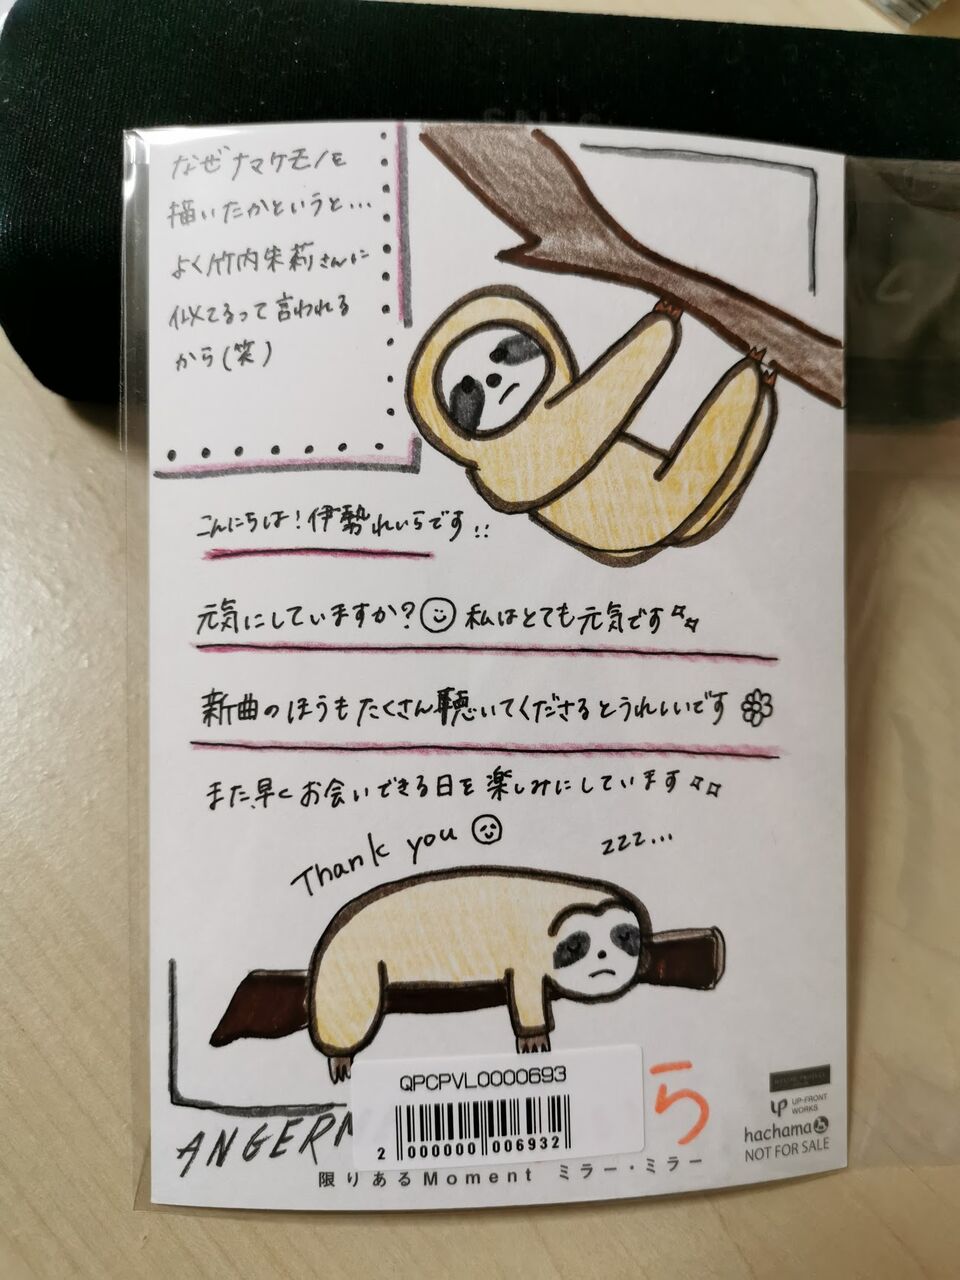 なぜナマケモノを
描いたかというと...
よく竹内朱莉さんに
似てるって言われる
から(笑)
こんにちは!伊勢れいらです!!
元気にしていますか?私はとても元気です
新曲のほうもたくさん聴いてくださるとうれしいです
また、早くお会いできる日を楽しみにしています
Thank you
zzz...
QPCPVL0000693
2 000000 006932
ら
ANGERM
UP-FRONT
WORKS
hachama
NOT FOR SALE
限りあるMoment ミラー・ミラー